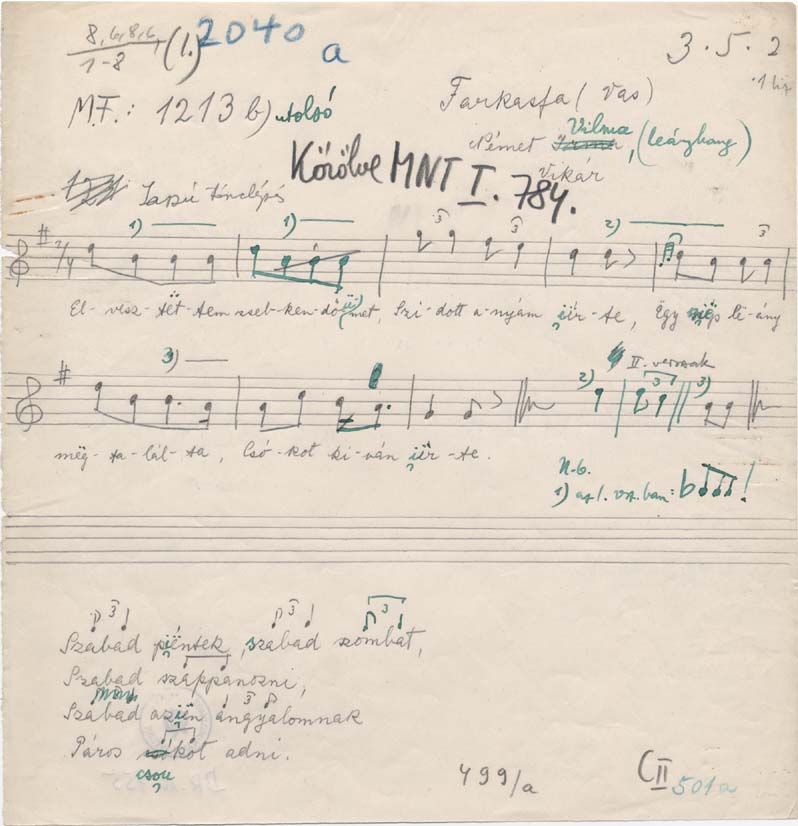 8,6,8,6, (1.) 2040 a
1-8
3.5.2
M.F.: 1213 b) utolsó
Farkasfa (Vas)
Német Vilma, (leányhang)
Vikár
Közölve MNT I. 784.
Lassú tánclépés
1) 1) 3 3 2) 3
2/4
El-vesz-tët-tem zseb-ken-dő-met, Szi-dott a-nyám iër-te, Ëgy szép le-ány
3) II. versszak
2) 3 3)
mëg-ta-lál-ta, Csó-kot ki-ván iër-te.
N.b.
1) az 1. vsz. ban: b !
3 3 3
Szabad piëntek, szabad szombat,
Szabad szappanozni,
3
Szabad aziën ángyalomnak
Páros csókot adni.
csou
499/a
CII 501a